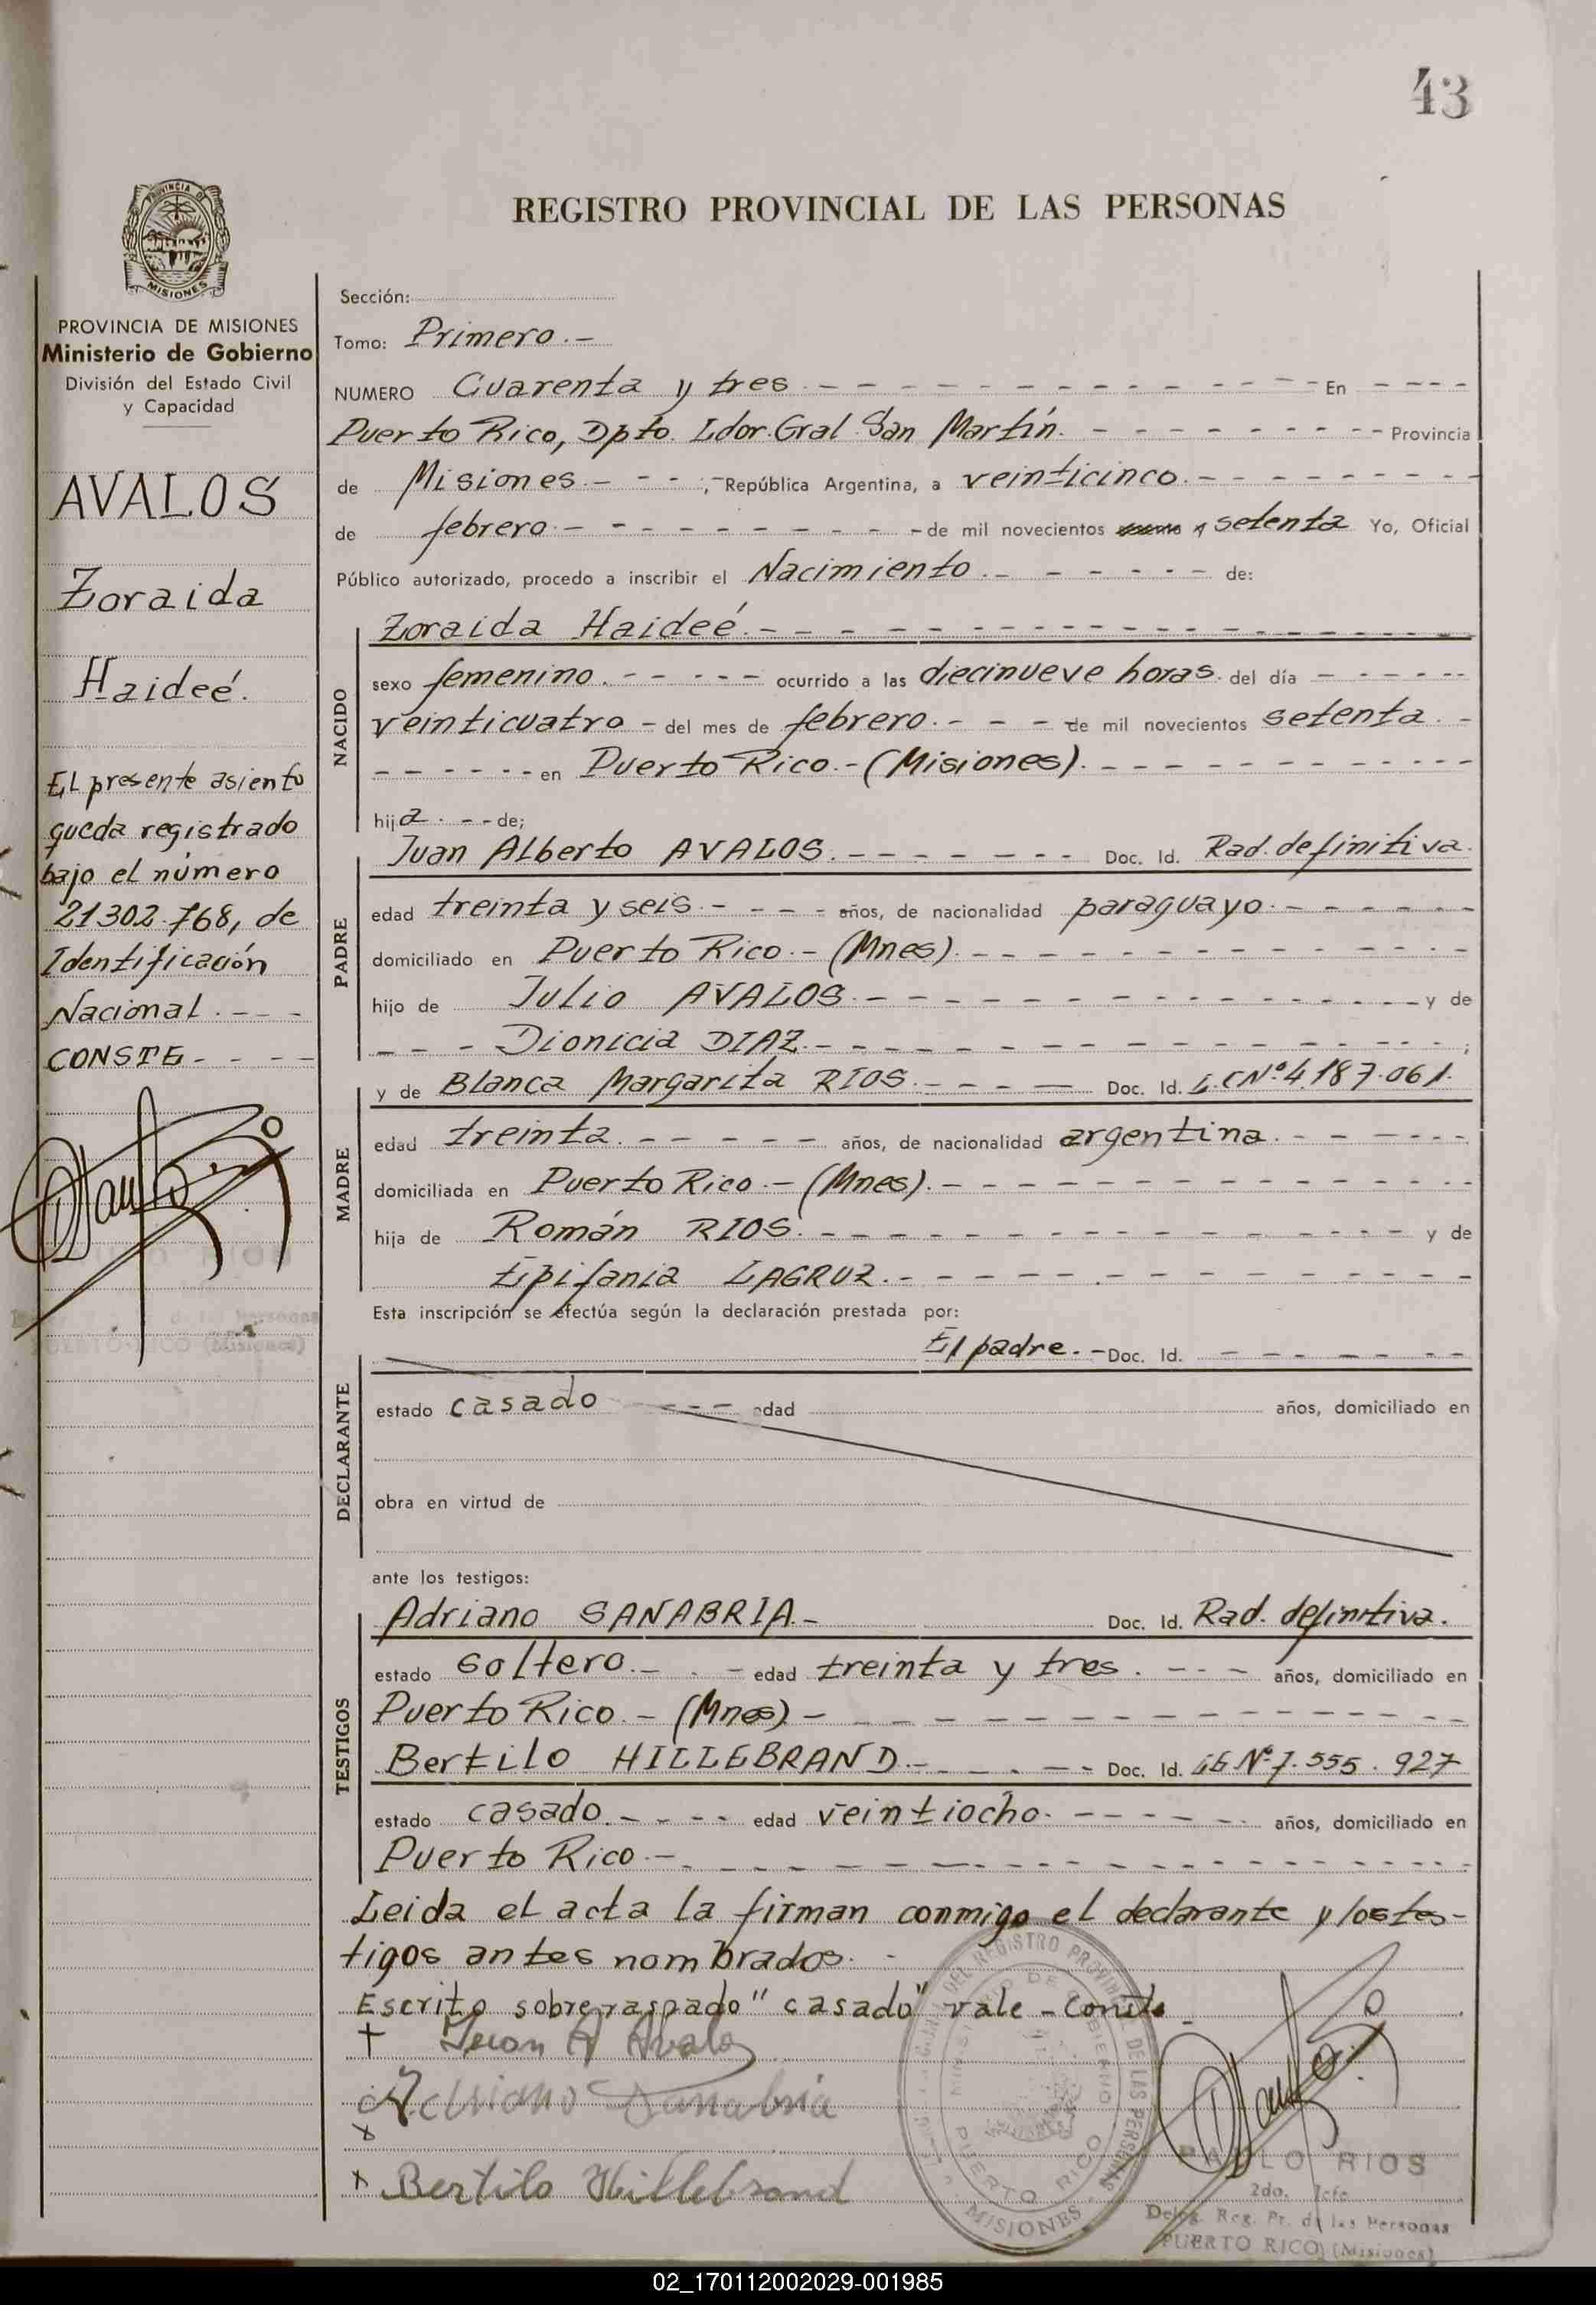 43
PROVINCIA DE
MISIONES
REGISTRO PROVINCIAL DE LAS PERSONAS
PROVINCIA DE MISIONES
Ministerio de Gobierno
División del Estado Civil
y Capacidad
AVALOS
Zoraida
Haideé.
El presente asiento
queda registrado
bajo el número
21302.768, de
Identificación
Nacional . - - -
CONSTE - - - -
Sección:
Tomo: Primero . -
NUMERO Cuarenta y tres - - - En - - - -
Puerto Rico, Dpto. Ldor. Gral. San Martín. - - - Provincia
de Misiones. - - - , República Argentina, a veinticinco. - - -
de febrero - - - de mil novecientos y setenta Yo, Oficial
Público autorizado, procedo a inscribir el Nacimiento. - - - de:
NACIDO
Zoraida Haideé. - - -
sexo femenino. - - - ocurrido a las diecinueve horas. del día - - -
veinticuatro - del mes de febrero. - - - de mil novecientos setenta. -
- - - en Puerto Rico. - (Misiones). - - -
hija. - - - de;
PADRE
Juan Alberto AVALOS. - - - Doc. Id. Rad. definitiva.
edad treinta y seis - - - años, de nacionalidad paraguayo. - - -
domiciliado en Puerto Rico. - (Mnes). - - -
hijo de Julio AVALOS. - - - y de
- - - Dionicia DIAZ. - - - ;
MADRE
y de Blanca Margarita RIOS. - - - Doc. Id. L.C Nº 4.187.061.
edad treinta. - - - años, de nacionalidad argentina. - - -
domiciliada en Puerto Rico. - (Mnes). - - -
hija de Román RIOS. - - - y de
Epifania LAGRUZ. - - -
Esta inscripción se efectúa según la declaración prestada por:
DECLARANTE
El padre. - Doc. Id. - - -
estado casado - - - edad años, domiciliado en
obra en virtud de
ante los testigos:
TESTIGOS
Adriano SANABRIA. - Doc. Id. Rad. definitiva.
estado soltero. - - edad treinta y tres. - - - años, domiciliado en
Puerto Rico. - (Mnes) - - -
Bertilo HILLEBRAND. - - - Doc. Id. LE Nº 7.555.927
estado casado. - - - edad veintiocho. - - - años, domiciliado en
Puerto Rico. - - -
Leida el acta la firman conmigo el declarante y los tes-
tigos antes nombrados. -
Escrito sobreraspado "casado" vale - Conste
+ Juan A Avalos
Adriano Sanabria
x
x Bertilo Hillebrand
DEL REGISTRO PROVINCIAL DE LAS PERSONAS
MINISTERIO DE GOBIERNO
PUERTO RICO
MISIONES
PABLO RIOS
2do. Jefe
Deleg. Reg. Pr. de las Personas
PUERTO RICO (Misiones)
02_170112002029-001985